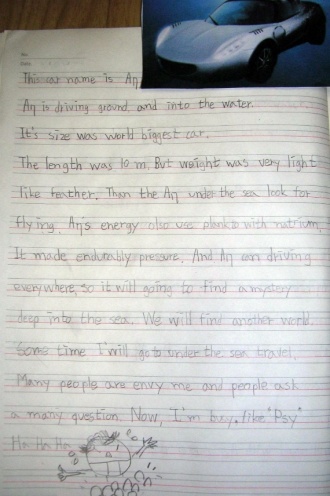 This car name is Aη
Aη is driving ground, and into the water.
It's size was world biggest car.
The length was 10 m. But weight was very light
like feather. Than the Aη under the sea look for
flying. Aη's energy also use with natrium.
It made endurably pressure. And Aη can driving
everywhere, so it will going to find a mystery
deep into the sea. We will find another world.
Some time I will go to under the sea travel.
Many people are envy me and people ask
a many question. Now, I'm busy. like "Psy"
Ha Ha Ha